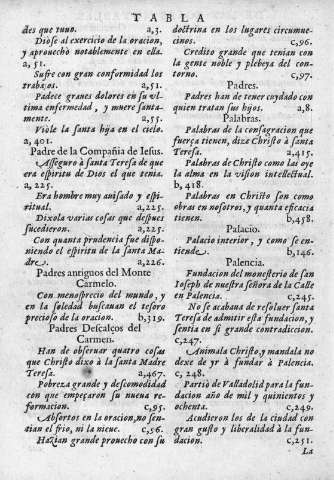 TABLA
des que tuuo. a,3.
Diose al exercicio de la oracion,
y aprouecho notablemente en ella.
a, 51.
Sufre con gran conformidad los
trabajos. a,51.
Padece granes dolores en su vl-
tima enfermedad, y muere santa-
mente. a,55.
Viole la santa hija en el cielo.
a, 401.
Padre de la Compañia de Iesus.
Asseguró à santa Teresa de que
era espiritu de Dios el que tenia.
a, 225.
Era hombre muy auisado y espi-
ritual. a,225.
Dixola varias cosas que despues
sucedieron. a,225.
Con quanta prudencia fue dispo-
niendo el espiritu de la santa Ma-
dre. a,226.
Padres antiguos del Monte
Carmelo.
Con menosprecio del mundo, y
en la soledad buscauan el tesoro
precioso de la oracion. b,319.
Padres Descalços del
Carmen.
Han de obseruar quatro cosas
que Christo dixo à la santa Madre
Teresa. a,467.
Pobreza grande y descomodidad
con que empeçaron su nueua re-
formacion. c,95.
Absortos en la oracion, no sen-
tian el frio, ni la nieue. c,56.
Hazian grande prouecho con su
doctrina en los lugares circumue-
cinos. c,96.
Credito grande que tenian con
la gente noble y plebeya del con-
torno. c,97.
Padres.
Padres han de tener cuydado con
quien tratan sus hijos. a,8.
Palabras.
Palabras de la consagracion que
fuerça tienen, dize Christo à santa
Teresa. a,415.
Palabras de Christo como las oye
la alma en la vision intellectual.
b, 418.
Palabras en Christo son como
obras en nosotros, y quanta eficacia
tienen. b,458.
Palacio.
Palacio interior, y como se en-
tiende. b,146.
Palencia.
Fundacion del monesterio de san
Ioseph de nuestra señora de la Calle
en Palencia. c,245.
No se acabana de resoluer santa
Teresa de admitir esta fundacion, y
sentia en si grande contradicion.
c,247.
Animala Christo, y mandala no
dexe de yr à fundar à Palencia.
c, 248.
Partio de Valladolid para la fun-
dacion año de mil y quinientos y
ochenta. c,249.
Acudieron los de la ciudad con
gran gusto y liberalidad à la fun-
dacion. c,251.
La